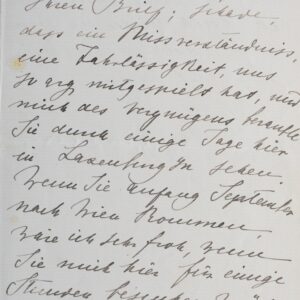 Ihren Brief; schade,
dass ein Missverständniss,
eine Fahrlässigkeit, uns
so arg mitgespielt hat, uns
mich des Vergnügens beraubte
Sie durch einige Tage hier
in Laxenburg zu sehen.
Wenn Sie anfang September
nach Wien kommen,
wäre ich sehr froh, wenn
Sie mich hier für einige
Stunden